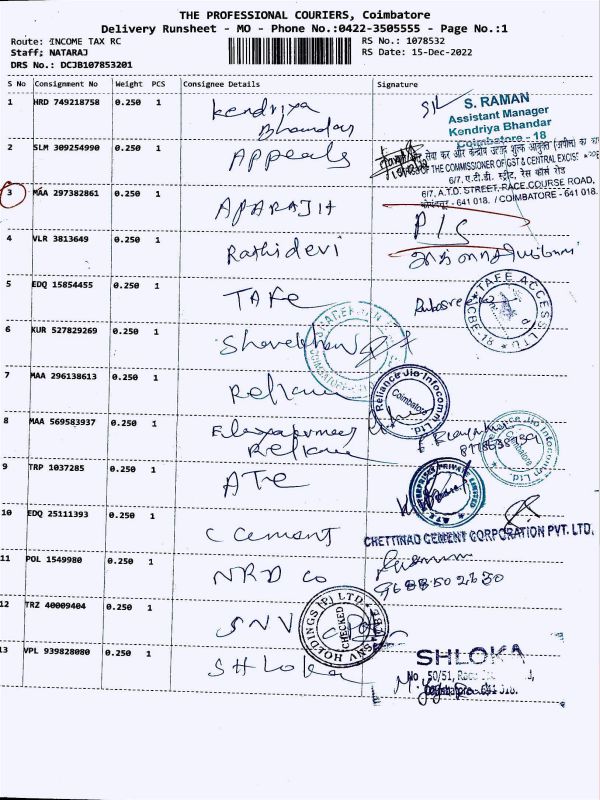 THE PROFESSIONAL COURIERS, Coimbatore
Delivery Runsheet - MO - Phone No.:0422-3505555 - Page No.:1
Route: INCOME TAX RC
RS No.: 1078532
Staff; NATARAJ
RS Date: 15-Dec-2022
DRS No.: DCJB107853201
S No Consignment No Weight PCS Consignee Details Signature
1 HRD 749218758 0.250 1 Kendriya
Bhandar
S. RAMAN
Assistant Manager
Kendriya Bhandar
Coimbatore - 18
2 SLM 309254990 0.250 1 Appeals
OF THE COMMISSIONER OF GST & CENTRAL EXCISE
6/7, ए.टी.डी. स्ट्रीट, रेस कोर्स रोड
6/7, A.T.D. STREET, RACE COURSE ROAD,
कोयंबत्तूर - 641 018. / COIMBATORE - 641 018.
3 MAA 297382861 0.250 1 APARAJIH
P/S
4 VLR 3813649 0.250 1 Rathidevi
5 EDQ 15854455 0.250 1 TAFE
TAFE ACCESS LTD
CBE-18
6 KUR 527829269 0.250 1
7 MAA 296138613 0.250 1 Reliance
Reliance Jio Infocomm Ltd.
Coimbatore
8 MAA 569583937 0.250 1
Reliance
Reliance Jio Infocomm Ltd.
9 TRP 1037285 0.250 1 ATE
ATE ENTERPRISES PRIVATE LIMITED
10 EDQ 25111393 0.250 1 C Cement
CHETTINAD CEMENT CORPORATION PVT. LTD.
11 POL 1549980 0.250 1 NRD Co
12 TRZ 40009404 0.250 1 SNV
SNV HOLDINGS (P) LTD
CHECKED
13 VPL 939828080 0.250 1 SHLOKA
SHLOKA
No 50/51, Race